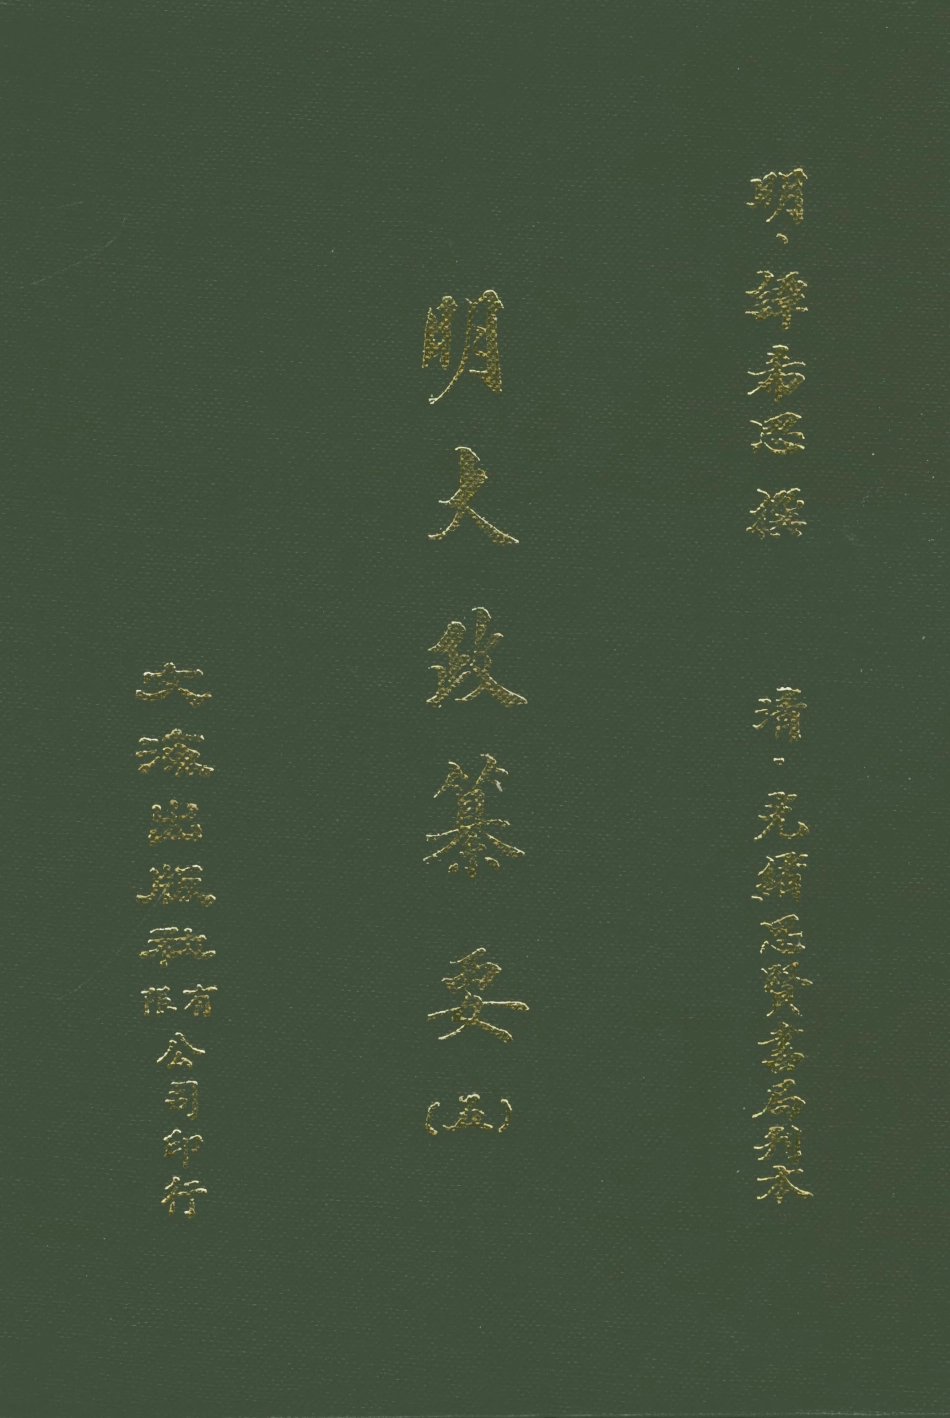 明·譚希思撰　清·光緒思賢書局刊本
明大政纂要(五)
文海出版社有限公司印行